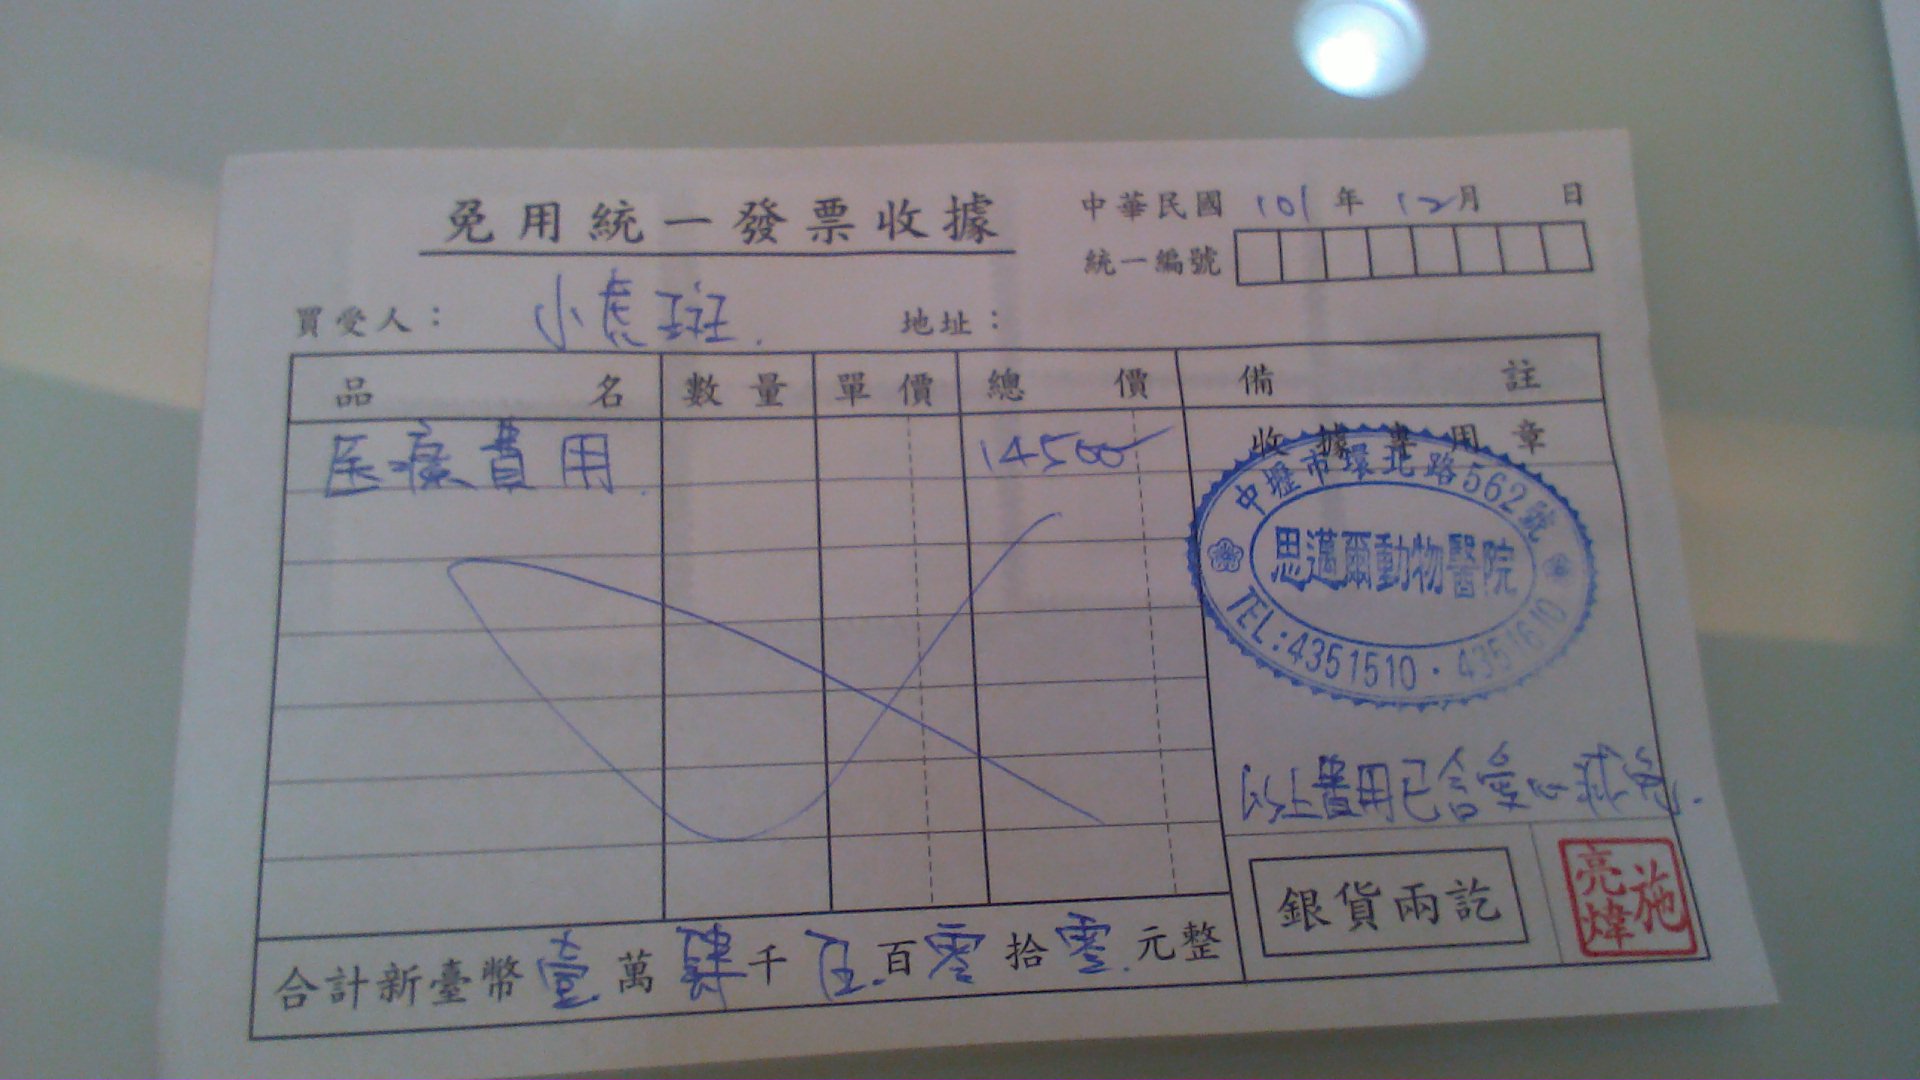 免用統一發票收據
中華民國 101 年 12 月 日
統一編號
買受人： 小虎班.
地址：
品名 數量 單價 總價 備註
医療費用. 14500
收據專用章
中壢市環北路562號
思邁爾動物醫院
TEL:4351510·4351610
以上費用已含愛心球池.
銀貨兩訖
施亮煒
合計新臺幣壹萬肆千伍百零拾零元整